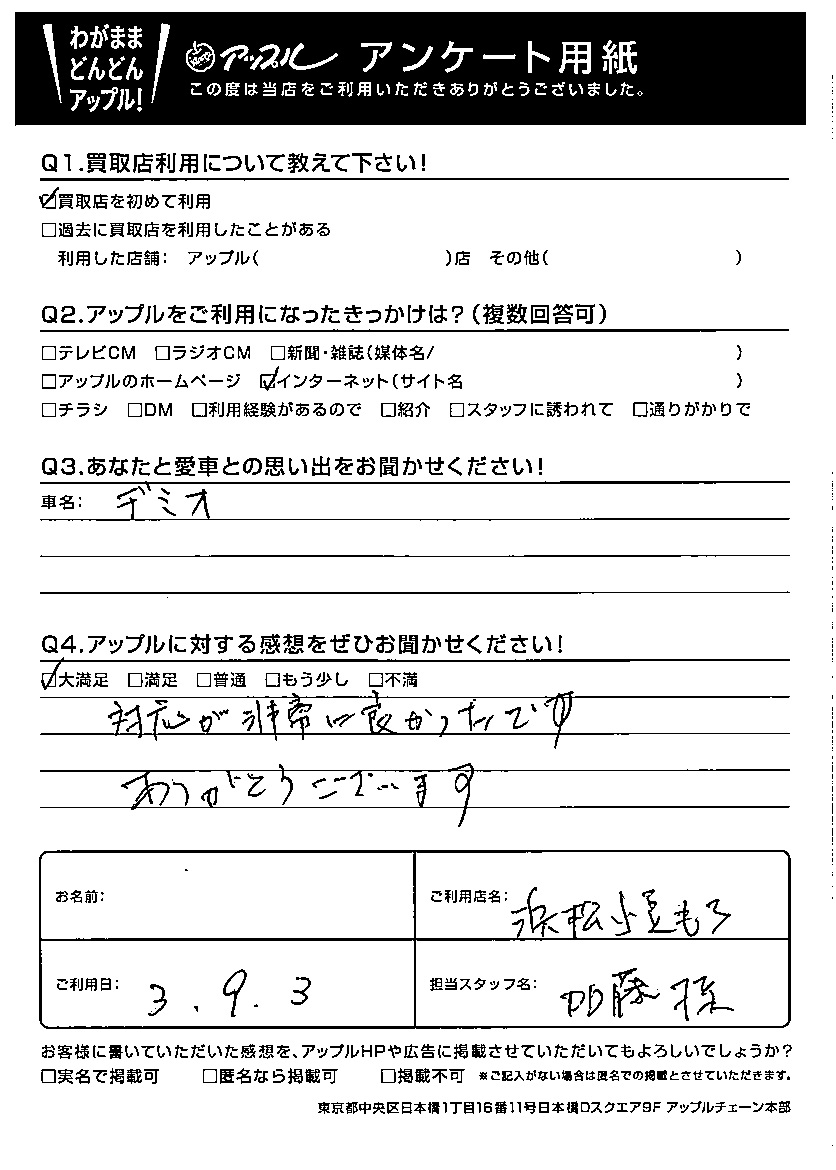 わがまま
どんどん
アップル!
アップル アンケート用紙
この度は当店をご利用いただきありがとうございました。
Q1.買取店利用について教えて下さい!
☑買取店を初めて利用
□過去に買取店を利用したことがある
利用した店舗: アップル( )店 その他( )
Q2.アップルをご利用になったきっかけは?(複数回答可)
□テレビCM □ラジオCM □新聞・雑誌(媒体名/ )
□アップルのホームページ ☑インターネット(サイト名 )
□チラシ □DM □利用経験があるので □紹介 □スタッフに誘われて □通りがかりで
Q3.あなたと愛車との思い出をお聞かせください!
車名: デミオ
Q4.アップルに対する感想をぜひお聞かせください!
☑大満足 □満足 □普通 □もう少し □不満
対応が非常に良かったです
ありがとうございます
お名前:
ご利用店名: 浜松小豆もち
ご利用日: 3.9.3
担当スタッフ名: 加藤様
お客様に書いていただいた感想を、アップルHPや広告に掲載させていただいてもよろしいでしょうか?
□実名で掲載可 □匿名なら掲載可 □掲載不可 ※ご記入がない場合は匿名での掲載とさせていただきます。
東京都中央区日本橋1丁目16番11号日本橋Dスクエア9F アップルチェーン本部